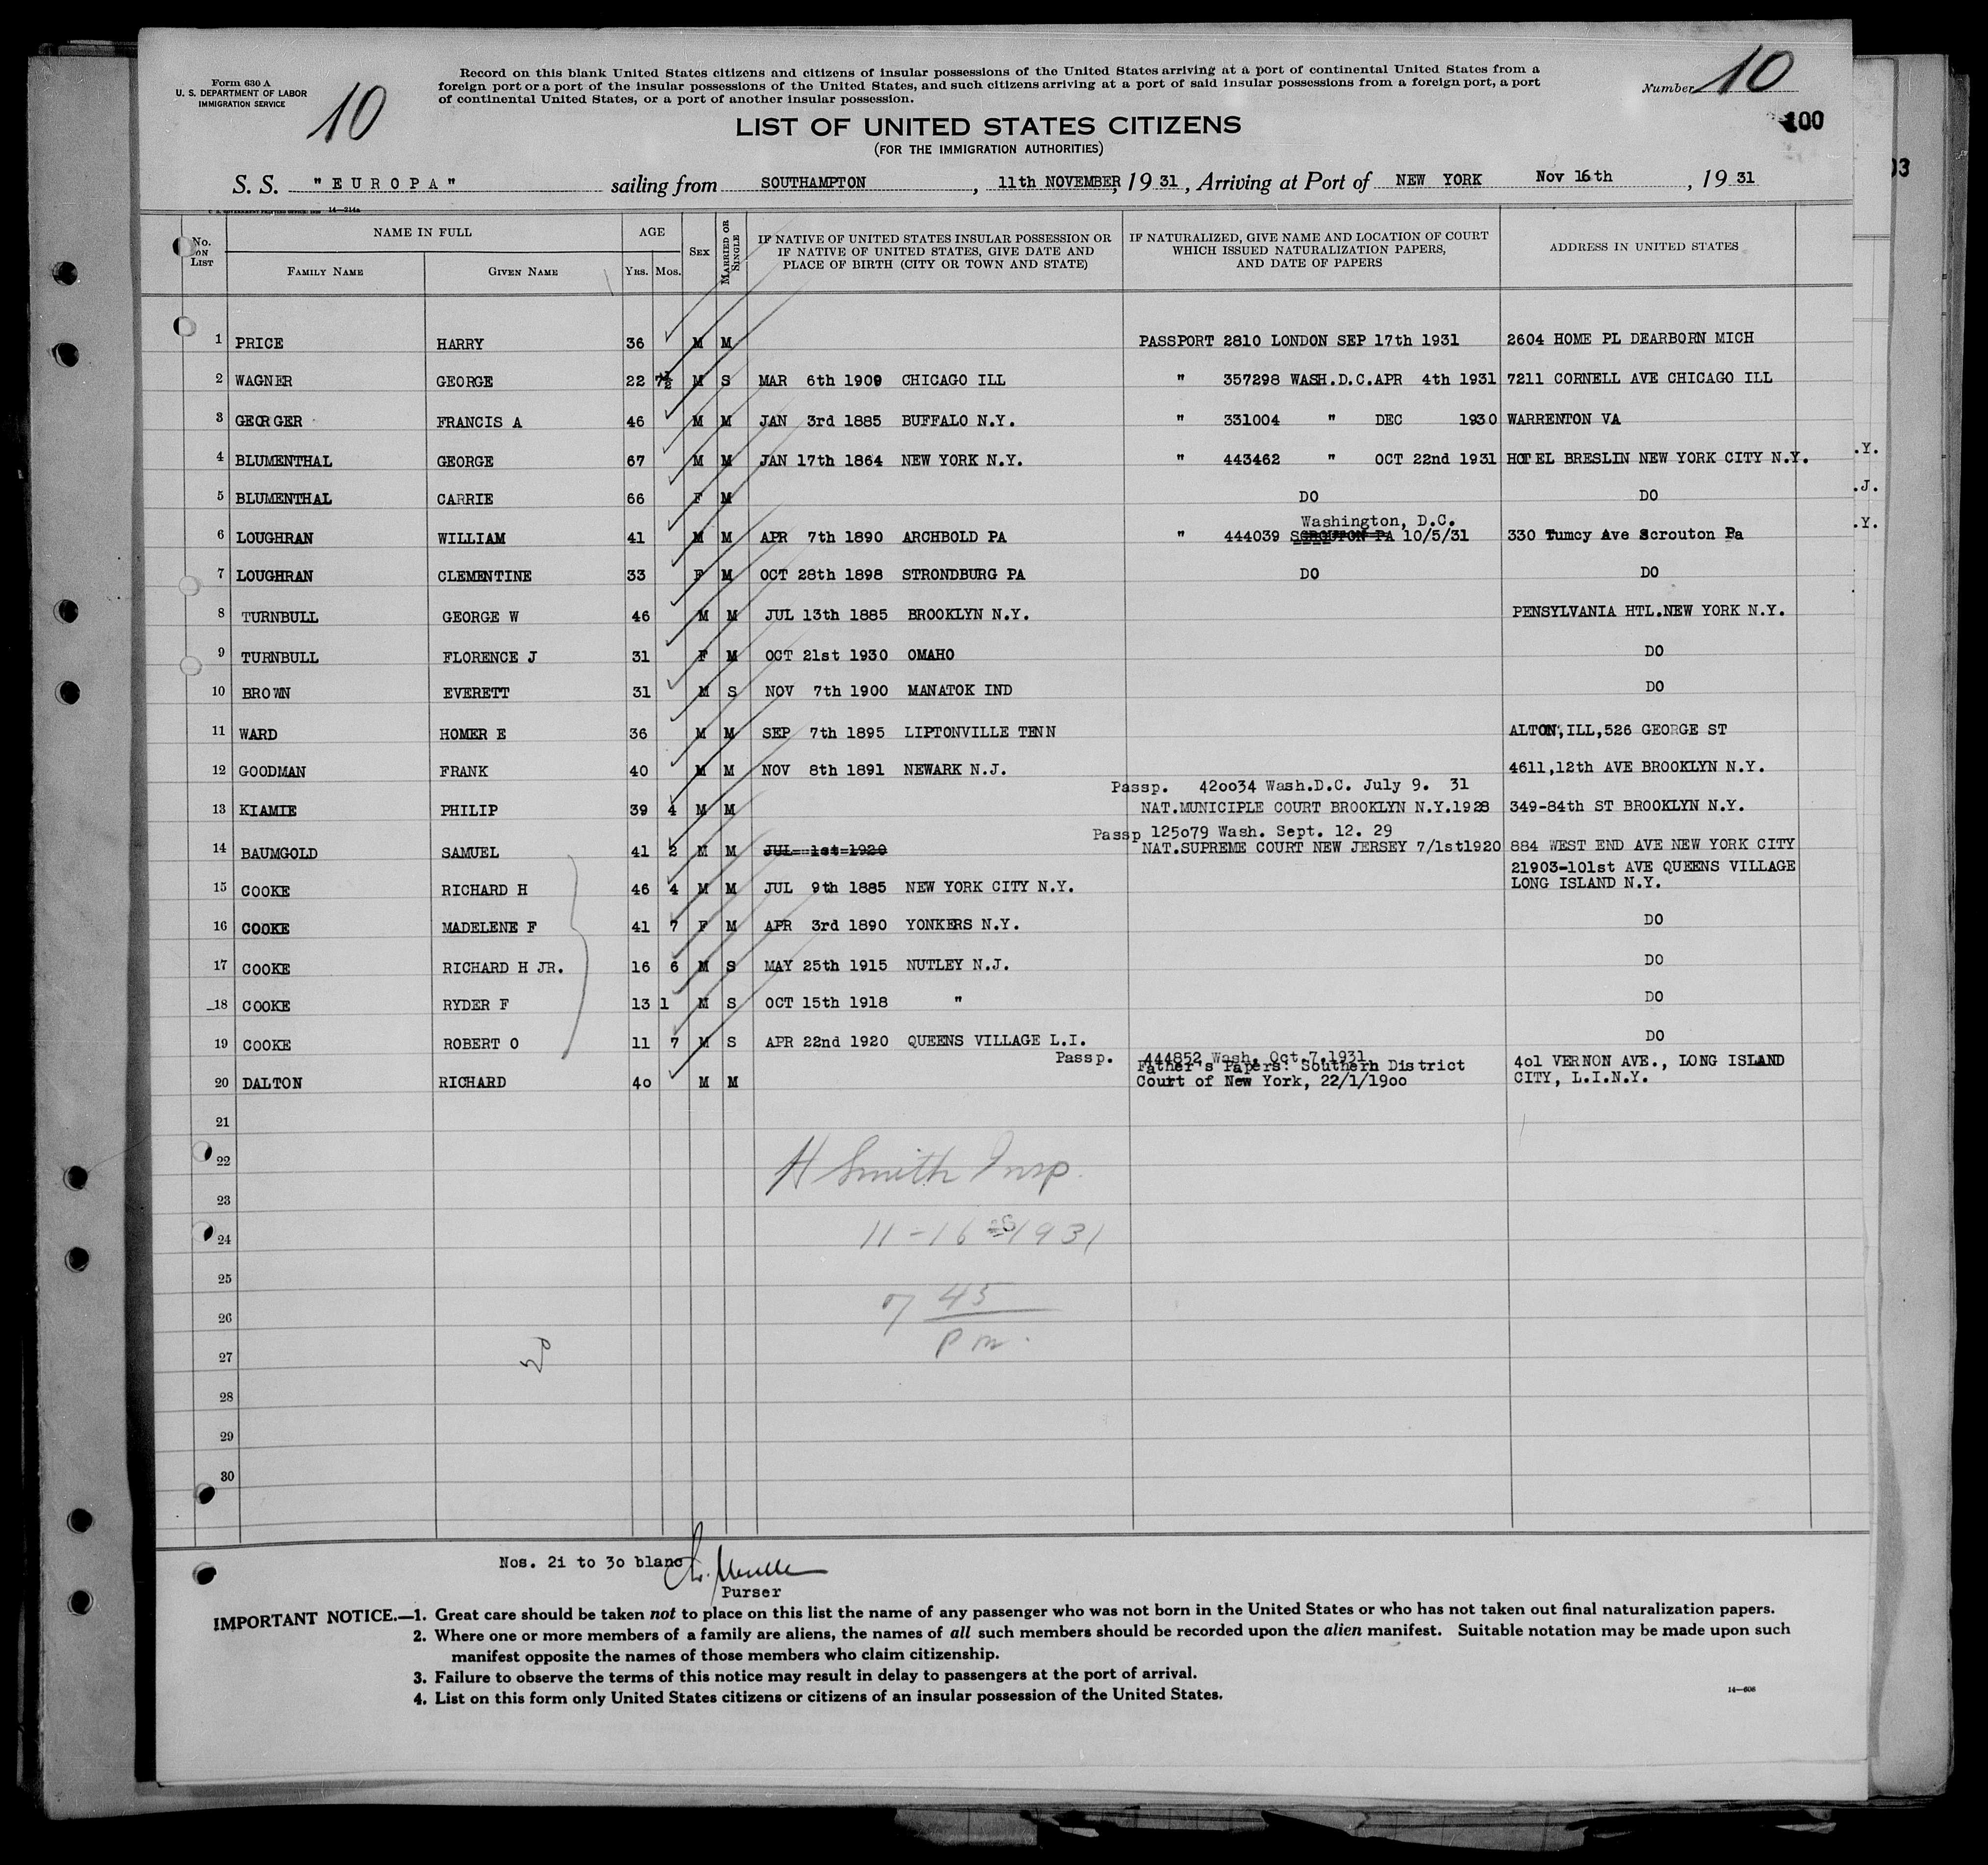 Form 630 A
U. S. DEPARTMENT OF LABOR
IMMIGRATION SERVICE
10
Record on this blank United States citizens and citizens of insular possessions of the United States arriving at a port of continental United States from a
foreign port or a port of the insular possessions of the United States, and such citizens arriving at a port of said insular possessions from a foreign port, a port
of continental United States, or a port of another insular possession.
Number 10
100
03
LIST OF UNITED STATES CITIZENS
(FOR THE IMMIGRATION AUTHORITIES)
S. S. "EUROPA" sailing from SOUTHAMPTON, 11th NOVEMBER, 1931, Arriving at Port of NEW YORK Nov 16th, 1931
14—214a
No. ON LIST
NAME IN FULL
FAMILY NAME
GIVEN NAME
AGE
YRS. MOS.
SEX
MARRIED OR SINGLE
IF NATIVE OF UNITED STATES INSULAR POSSESSION OR
IF NATIVE OF UNITED STATES, GIVE DATE AND
PLACE OF BIRTH (CITY OR TOWN AND STATE)
IF NATURALIZED, GIVE NAME AND LOCATION OF COURT
WHICH ISSUED NATURALIZATION PAPERS,
AND DATE OF PAPERS
ADDRESS IN UNITED STATES
1 PRICE HARRY 36 M M PASSPORT 2810 LONDON SEP 17th 1931 2604 HOME PL DEARBORN MICH
2 WAGNER GEORGE 22 7½ M S MAR 6th 1909 CHICAGO ILL " 357298 WASH.D.C.APR 4th 1931 7211 CORNELL AVE CHICAGO ILL
3 GEORGER FRANCIS A 46 M M JAN 3rd 1885 BUFFALO N.Y. " 331004 " DEC 1930 WARRENTON VA
4 BLUMENTHAL GEORGE 67 M M JAN 17th 1864 NEW YORK N.Y. " 443462 " OCT 22nd 1931 HOTEL BRESLIN NEW YORK CITY N.Y.
.Y.
5 BLUMENTHAL CARRIE 66 F M DO DO
.J.
Washington, D.C.
.Y.
6 LOUGHRAN WILLIAM 41 M M APR 7th 1890 ARCHBOLD PA " 444039 SCROUTON PA 10/5/31 330 Tumcy Ave Scrouton Pa
7 LOUGHRAN CLEMENTINE 33 F M OCT 28th 1898 STRONDBURG PA DO DO
8 TURNBULL GEORGE W 46 M M JUL 13th 1885 BROOKLYN N.Y. PENSYLVANIA HTL.NEW YORK N.Y.
9 TURNBULL FLORENCE J 31 F M OCT 21st 1930 OMAHO DO
10 BROWN EVERETT 31 M S NOV 7th 1900 MANATOK IND DO
11 WARD HOMER E 36 M M SEP 7th 1895 LIPTONVILLE TENN ALTON,ILL,526 GEORGE ST
12 GOODMAN FRANK 40 M M NOV 8th 1891 NEWARK N.J. 4611,12th AVE BROOKLYN N.Y.
Passp. 420034 Wash.D.C. July 9. 31
13 KIAMIE PHILIP 39 4 M M NAT.MUNICIPLE COURT BROOKLYN N.Y.1928 349-84th ST BROOKLYN N.Y.
Passp 125079 Wash. Sept. 12. 29
14 BAUMGOLD SAMUEL 41 2 M M JUL 1st 1920 NAT.SUPREME COURT NEW JERSEY 7/1st1920 884 WEST END AVE NEW YORK CITY
21903-101st AVE QUEENS VILLAGE
15 COOKE RICHARD H 46 4 M M JUL 9th 1885 NEW YORK CITY N.Y. LONG ISLAND N.Y.
16 COOKE MADELENE F 41 7 F M APR 3rd 1890 YONKERS N.Y. DO
17 COOKE RICHARD H JR. 16 6 M S MAY 25th 1915 NUTLEY N.J. DO
18 COOKE RYDER F 13 1 M S OCT 15th 1918 " DO
19 COOKE ROBERT O 11 7 M S APR 22nd 1920 QUEENS VILLAGE L.I. DO
Passp. 444852 Wash. Oct.7.1931
Father's Papers: Southern District 401 VERNON AVE., LONG ISLAND
20 DALTON RICHARD 40 M M Court of New York, 22/1/1900 CITY, L.I.N.Y.
21
22
H Smith Insp.
23
24
11-16-1931
25
26
7 45
pm.
27
20
28
29
30
Nos. 21 to 30 blanc
Purser
IMPORTANT NOTICE.—1. Great care should be taken not to place on this list the name of any passenger who was not born in the United States or who has not taken out final naturalization papers.
2. Where one or more members of a family are aliens, the names of all such members should be recorded upon the alien manifest. Suitable notation may be made upon such
manifest opposite the names of those members who claim citizenship.
3. Failure to observe the terms of this notice may result in delay to passengers at the port of arrival.
4. List on this form only United States citizens or citizens of an insular possession of the United States.
14—608